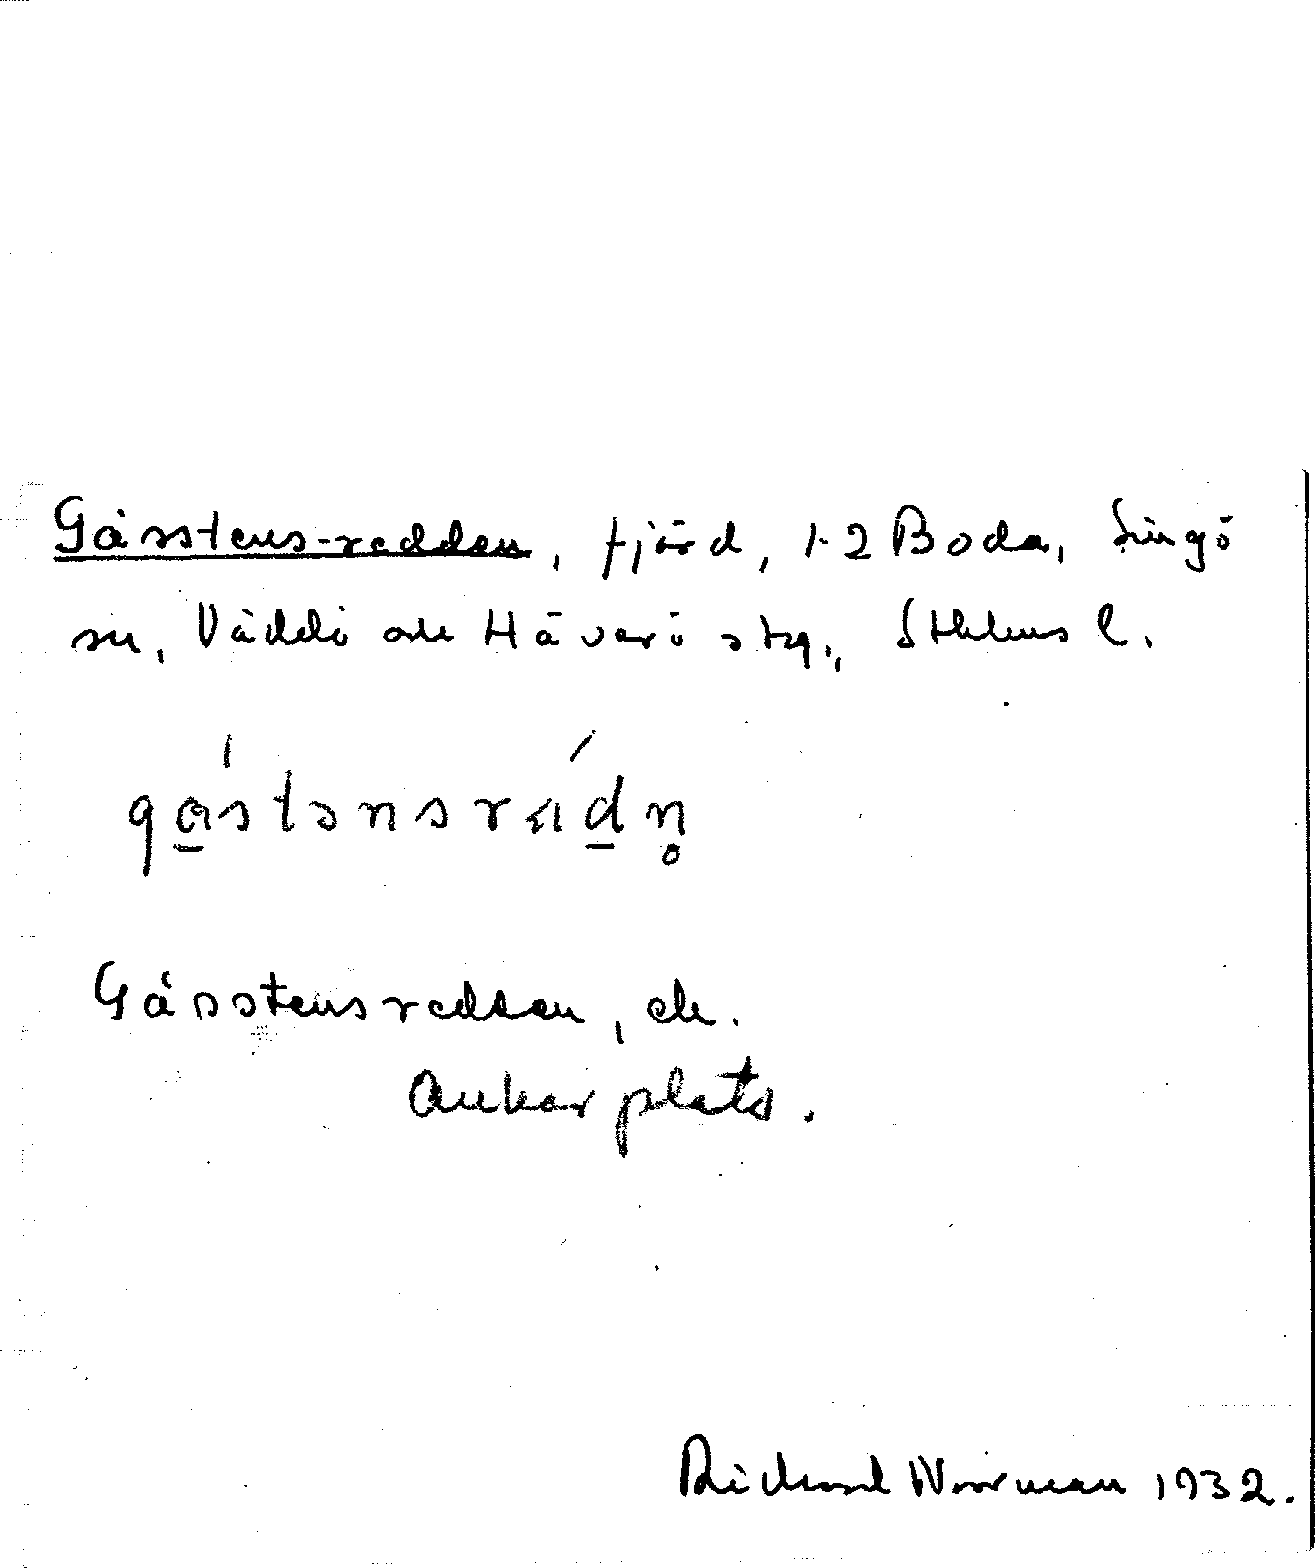 Gässtens-redden, fjärd, 1-2 Boda, Singö
sn, Väddö och Häverö skg., Sthlms l.
Gässtensredden, ek.
Ankarplats.
Richard Norrman 1932.